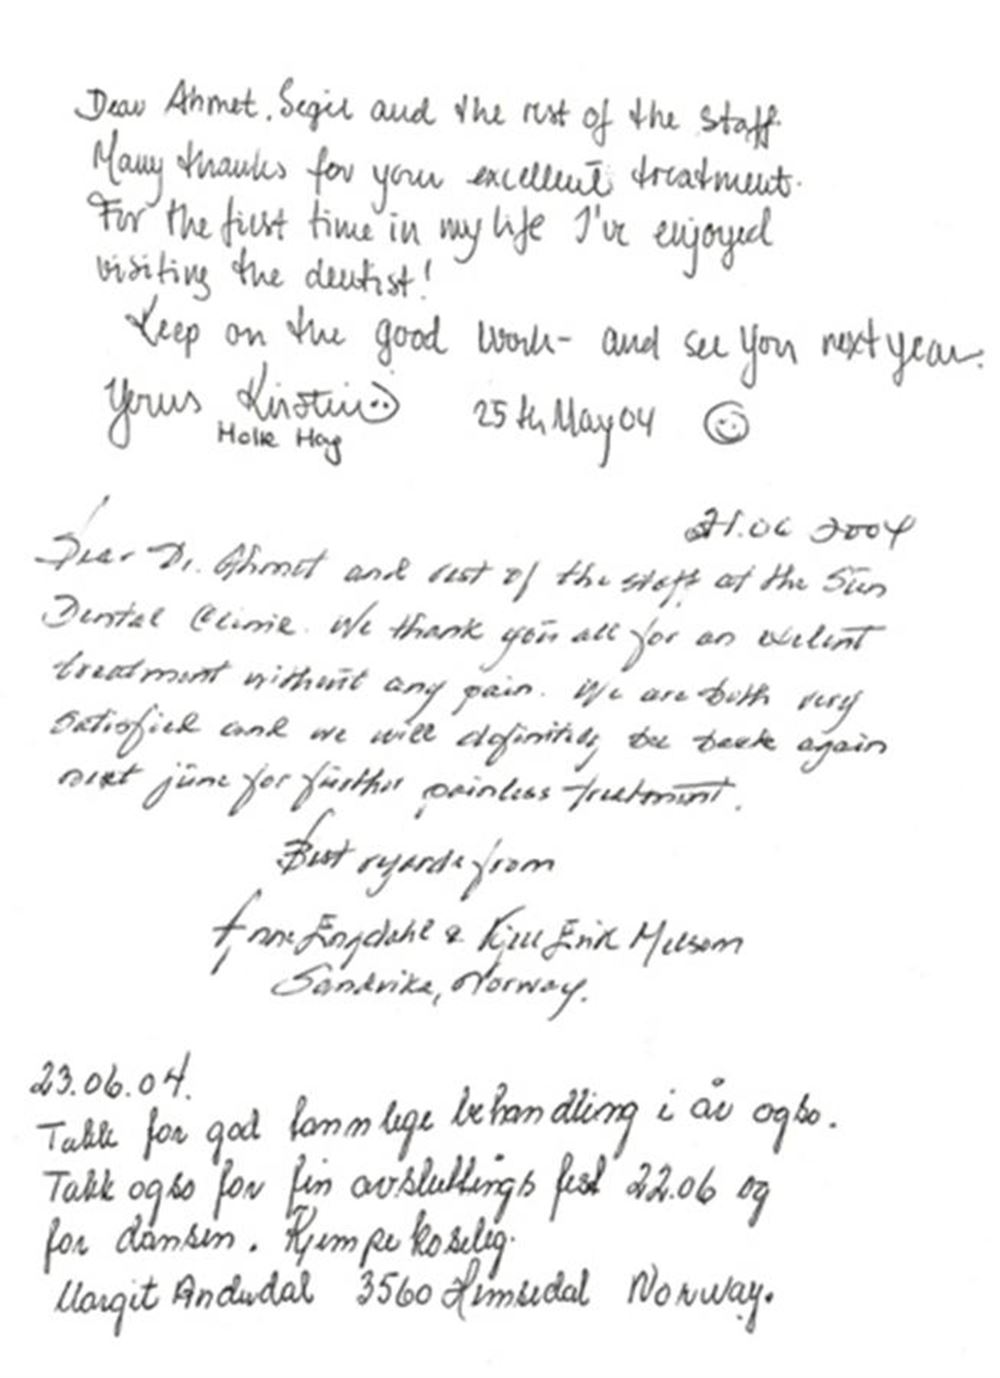 Dear Ahmet, Segil and the rest of the staff.
Many thanks for your excellent treatment.
For the first time in my life I've enjoyed
visiting the dentist!
Keep on the good work - and see you next year.
Yours Kirsten
25th May 04
Holk Hag
21.06 2004
Dear Dr. Ahmet and rest of the staff at the Sun
Dental Clinic. We thank you all for an exelent
treatment without any pain. We are both very
satisfied and we will definitely be back again
next june for further painless treatment.
Best regards from
Anne Engdahl & Kjell Erik Melsom
Sandvika, Norway.
23.06.04.
Takk for god tannlege behandling i år også.
Takk også for fin avsluttings fest 22.06 og
for dansen. Kjempe koselig.
Margit 3560 Hemsedal Norway.